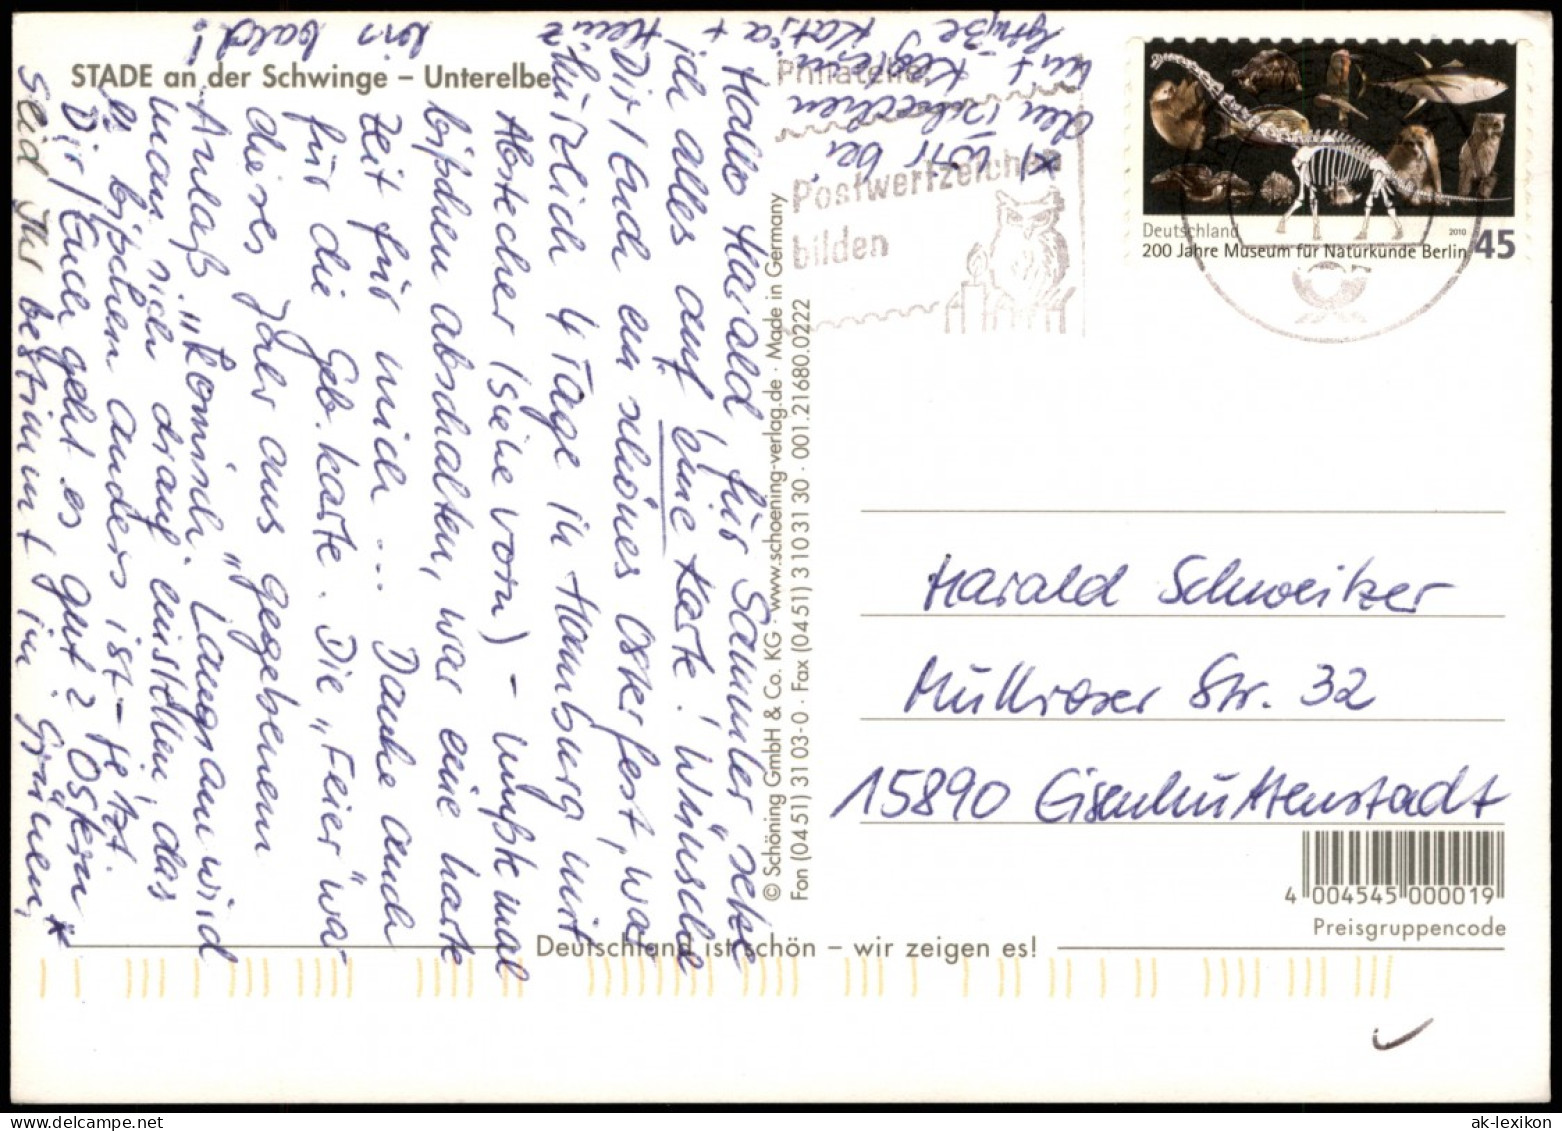 STADE an der Schwinge – Unterelbe
Hallo Harald, für Sammler setze
ich alles auf eine Karte! Wünsche
Dir / Euch ein schönes Osterfest, war
kürzlich 4 Tage in Hamburg mit
Abstecher (siehe vorn) – mußte mal
bißchen abschalten, war eine harte
Zeit für mich ... Danke auch
für die Geb.karte. Die „Feier" war
dieses Jahr aus „gegebenem
Anlaß" komisch. Langsam wird
man sich drauf einstellen, das
es bißchen anders ist – jetzt.
Dir / Euch geht es gut? Ostern
seid Ihr bestimmt im Grünen, *
bis bald!
Grüße Katja +
Heinz
*) Wir bei
den
Philatelie
Postwertzeichen
bilden
Deutschland
2010
200 Jahre Museum für Naturkunde Berlin 45
© Schöning GmbH & Co. KG · www.schoening-verlag.de · Made in Germany
Fon (0451) 3103-0 · Fax (0451) 3103130 · 001.21680.0222
Harald Schweitzer
Mullroser Str. 32
15890 Eisenhüttenstadt
4 004545 000019
Preisgruppencode
Deutschland ist schön – wir zeigen es!
ak-lexikon